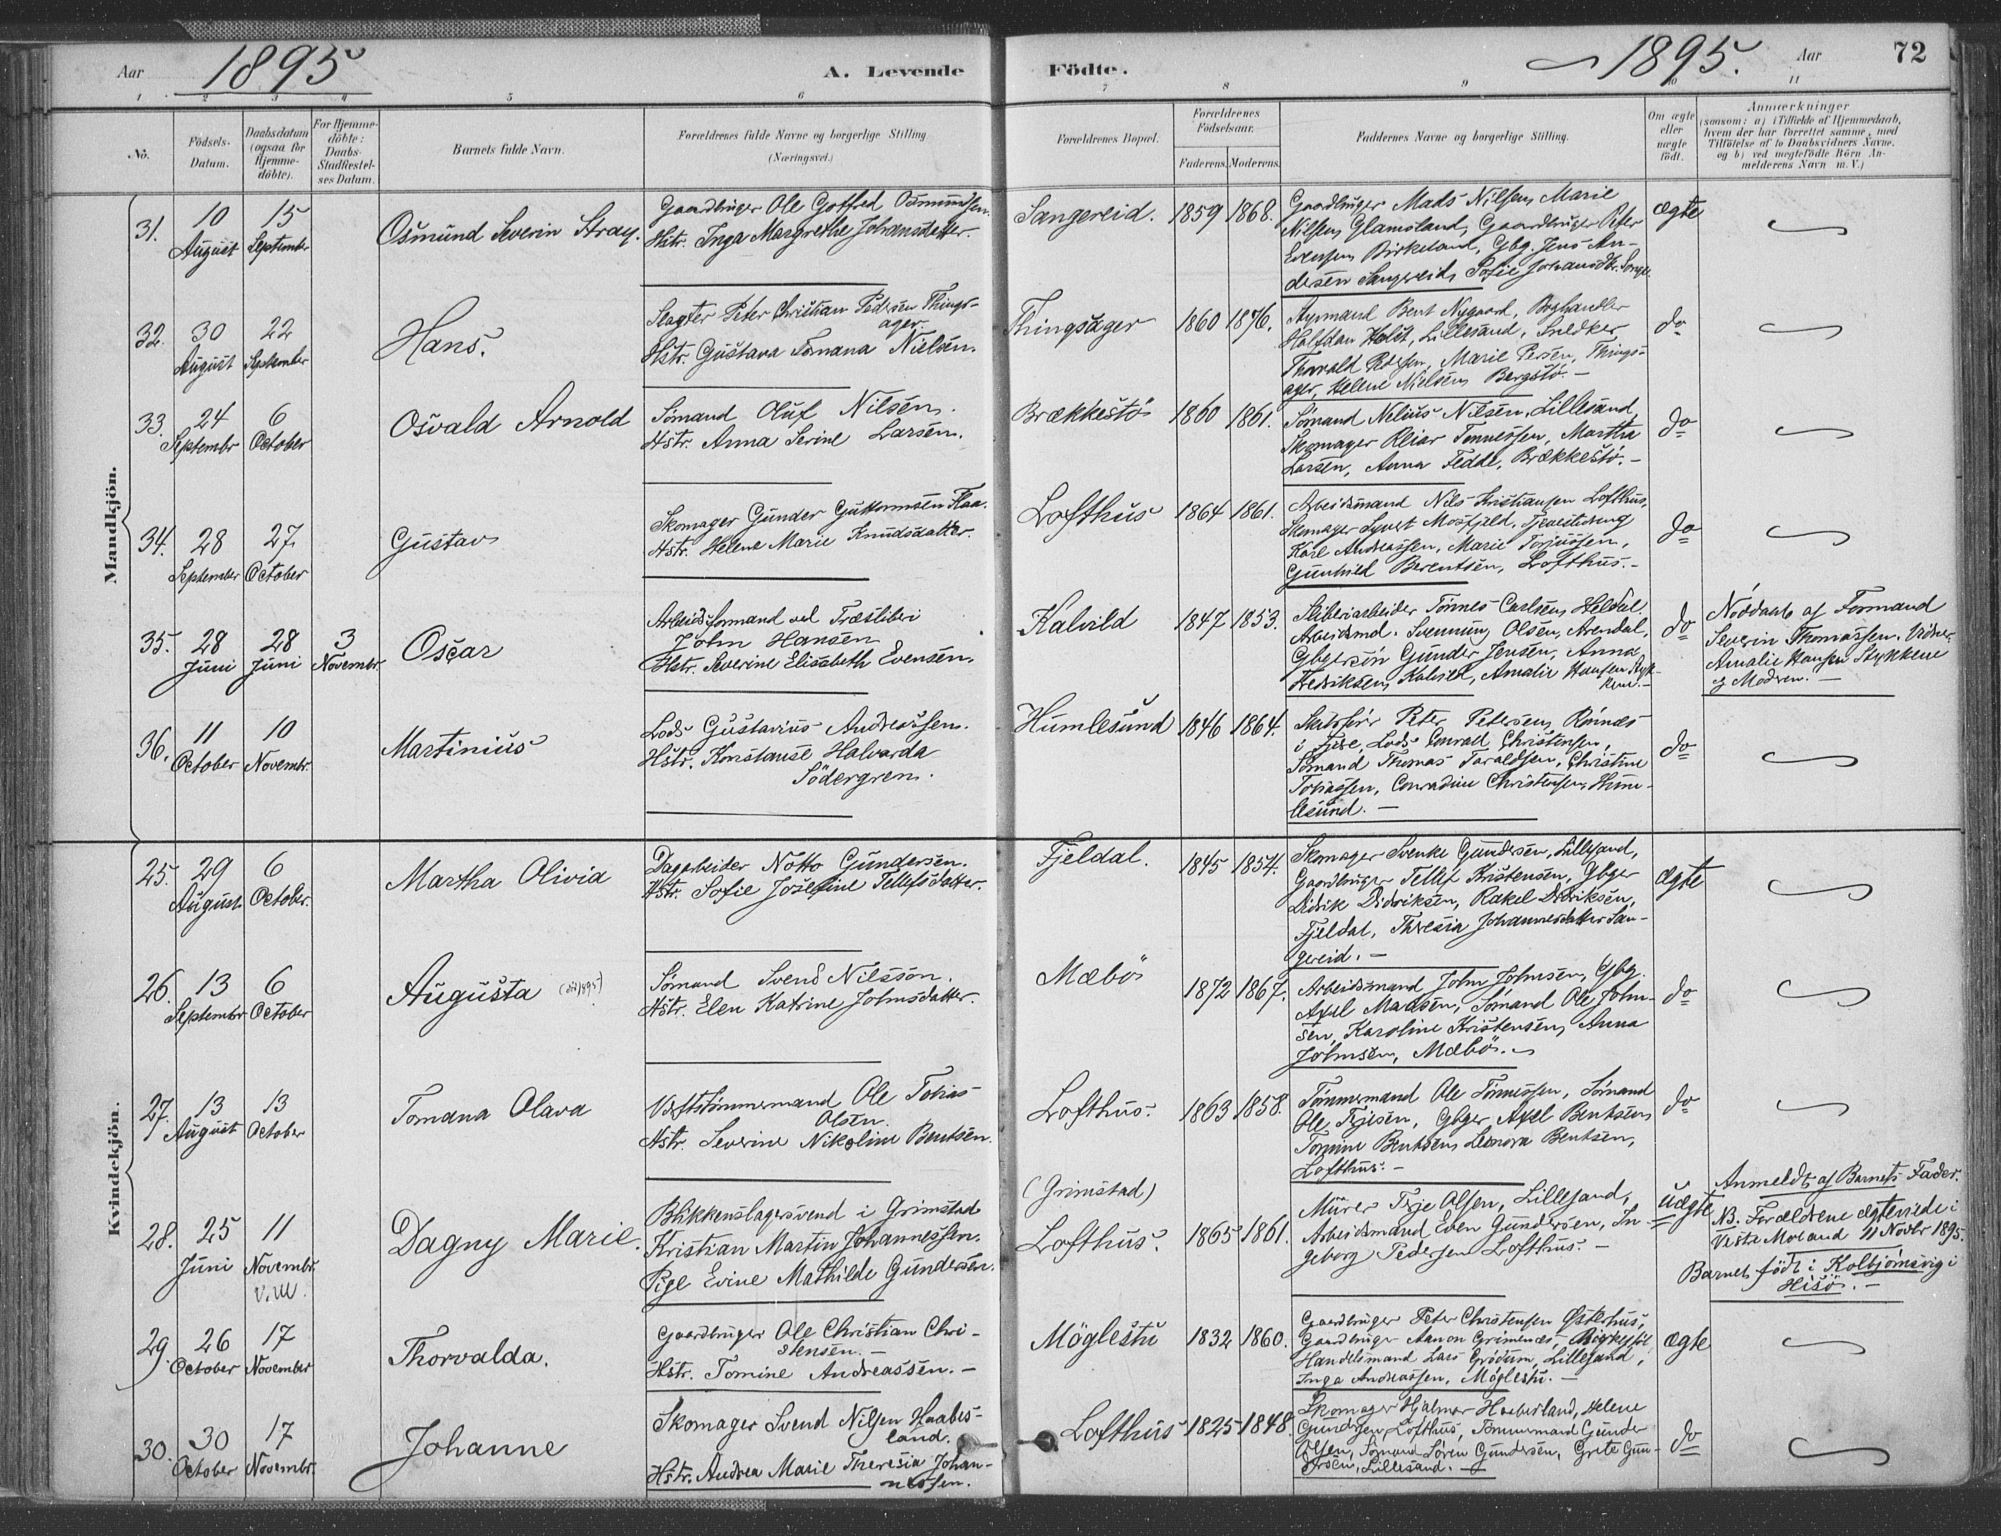 Aar 1895 A. Levende Födte. 1895. Aar 72
1 2 3 4 5 6 7 8 9 10 11
No.
Födsels-
Datum.
Daabsdatum
(ogsaa for
Hjemme-
döbte).
For Hjemme-
döbte:
Daabs-
Stadfæstel-
ses Datum.
Barnets fulde Navn.
Forældrenes fulde Navne og borgerlige Stilling
(Næringsvei.)
Forældrenes Bopæl.
Forældrenes
Födselsaar.
Faderens. Moderens.
Faddernes Navne og borgerlige Stilling.
Om ægte
eller
uægte
födt.
Anmærkninger
(saasom: a) i Tilfælde af Hjemmedaab,
hvem der har forrettet samme, med
Tilföielse af to Daabsvidners Navne,
og b) ved uægtefödte Börn An-
melderens Navn m. V.)
Mandkjön.
31. 10 August 15 September
Osmund Severin Stray.
Gaardbruger Ole Gotfred Osmundsen.
Hstr. Inga Margrethe Johansdatter.
Sangereid. 1859 1868.
Gaardbruger Mads Nilsen, Marie
Nilsen Glamsland, Gaardbruger Peter
Evensen Birkeland, Gbg. Jens An-
dersen Sangereid, Sofie Johansdtr. Sange
ægte
32. 30 August 22 September
Hans.
Slagter Peter Christian Pedersen Things-
ager.
Hstr. Gustava Tomana Nielsen.
Thingsager 1860 1876.
Bent Nygaard, Boghandler
Halfdan Holst, Lillesand, Snedker
Thorvald Marie Persen, Things-
ager, Helene Nielsen, Bergstö. -
do
33. 24 Septembr 6 October
Osvald Arnold
Sömand Oluf Nilsen.
Hstr. Anna Serine Larsen.
Brækkestö 1860 1861.
Sömand Nelius Nilsen, Lillesand,
Skomager Reiar Tönnessen, Martha
Larsen, Anna Fedde, Brækkestö. -
do
34. 28 September 27 October
Gustav
Skomager Gunder Guttormsen Flaa.
Hstr. Helene Marie Knudsdatter.
Lofthus 1864 1861.
Arbeidsmand Nils Kristiansen Lofthus,
Skomager Syvert Mosfjeld, Tjenestedreng
Karl Andreassen, Marie Torjussen,
Gunhild Berentsen, Lofthus. -
do
35. 28 Juni 28 Juni 3 Novembr.
Oscar
Arbeidsformand ved Træsliberi
John Hansen
Hstr. Severine Elisabeth Evensen.
Kalvild 1847 1853.
Sliberiarbeider Tönnes Carlsen Heldal.
Arbeidsmd. Svennung Olsen, Arendal,
Gbgersön Gunder Jensen, Anna
Fredriksen, Kalvild, Amalie Hansen Styk-
kene. -
do
Nöddaab af Formand
Severin Thomassen. Vidner
Amalie Hansen Stykkene
og Modren. -
36. 11 October 10 Novembr.
Martinius
Lods Gustavius Andreassen.
Hstr. Konstanse Halvarda
Södergren.
Humlesund 1846 1864.
Skibsförer Peter Petersen, Rönnes
i Fjære, Lods Conrad Christensen,
Sömand Thomas Taraldsen, Christine
Tobiassen, Conradine Christensen, Hum-
lesund. -
do
Kvindekjön.
25. 29 August 6 October.
Martha Olivia
Dagarbeider Notto Gundersen.
Hstr. Sofie Josefine Tellefsdatter.
Fjeldal. 1845 1854.
Skomager Svenke Gundersen, Lillesand,
Gaardbruger Tellef Kristensen, Gbger
Didrik Didriksen, Rakel Didriksen,
Fjeldal, Theresia Johannesdatter San-
gereid. -
ægte
26. 13 September 6 October
Augusta
Sömand Svend Nilsson.
Hstr. Elen Katrine Johnsdatter.
Mæbö 1872 1867.
Arbeidsmand John Johnsen, Gbg.
Axel Madsen, Sömand Ole John-
sen, Karoline Kristensen, Anna
Johnsen, Mæbö.
do
27. 13 August 13 October
Tomana Olava
Værftstömmermand Ole Tobias
Olsen.
Hstr. Severine Nikoline Bentsen.
Lofthus. 1863 1858.
Tömmermand Ole Tönnessen, Sömand
Ole Terjesen, Gbger Axel Bentsen,
Tomine Bentsen, Leonora Bentsen,
Lofthus. -
do
28. 25 Juni 11 Novembr.
Dagny Marie.
Blikkenslagersvend i Grimstad
Kristian Martin Johannessen.
Pige Evine Mathilde Gundersen.
(Grimstad)
Lofthus. 1865 1861.
Murer Terje Olsen, Lillesand,
Arbeidsmand Even Gundersen, In-
geborg Pedersen Lofthus. -
uægte
Anmeldt af Barnets Fader.
NB. Forældrene ægteviede i
Vestre Moland 11 Novbr 1895.
Barnet födt i Kolbjörnsvig i
Hisö. -
29. 26 October 17 November
Thorvalda.
Gaardbruger Ole Christian Chri-
stensen. -
Hstr. Tomine Andreassen. -
Möglestu 1832 1860.
Gaardbruger Peter Christensen Østerhus,
Gaardbruger Aanon Grimenæs, Birkenæs
Handelsmand Lars Grödum, Lillesand,
Inga Andreassen, Möglestu. -
ægte
30. 30 October 17 Novembr.
Johanne
Skomager Svend Nilsen Haabes-
land.
Hstr. Andrea Marie Theresia Johan-
nessen.
Lofthus 1825 1848.
Skomager Hjalmar Haabesland, Helene
Gundersen Lofthus, Tömmermand Gunder
Olsen, Sömand Sören Gundersen, Grete Gun-
dersen, Lillesand. -
do